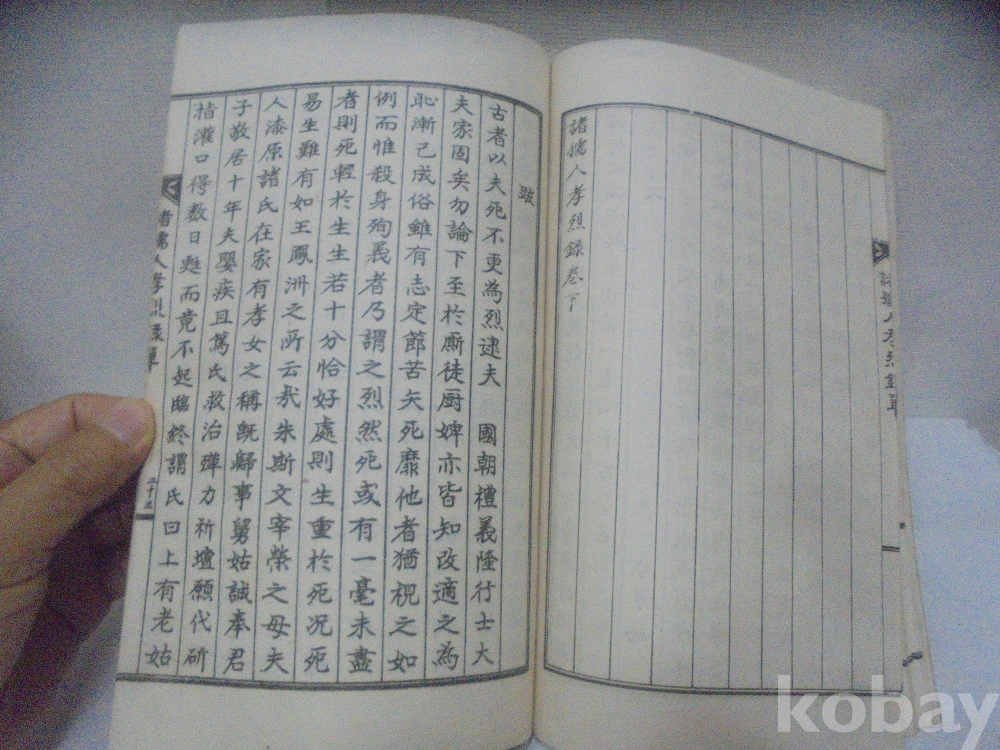 諸孺人孝烈錄單
諸孺人孝烈録卷下
跋
古者以夫死不更為烈逮夫 國朝禮義隆行士大
夫家固矣勿論下至於厮徒厨婢亦皆知改適之為
恥漸已成俗雖有志定節苦矢死靡他者猶視之如
例而惟殺身殉義者乃謂之烈然死或有一毫未盡
者則死輕於生生若十分恰好處則生重於死况死
易生難有如王鳳洲之所云哉朱斯文宰榮之母夫
人漆原諸氏在家有孝女之稱旣歸事舅姑誠奉君
子敬居十年夫嬰疾且篤氏救治殫力祈壇願代斫
指灌口得数日甦而竟不起臨終謂氏曰上有老姑
諸孺人孝烈錄單
kobay